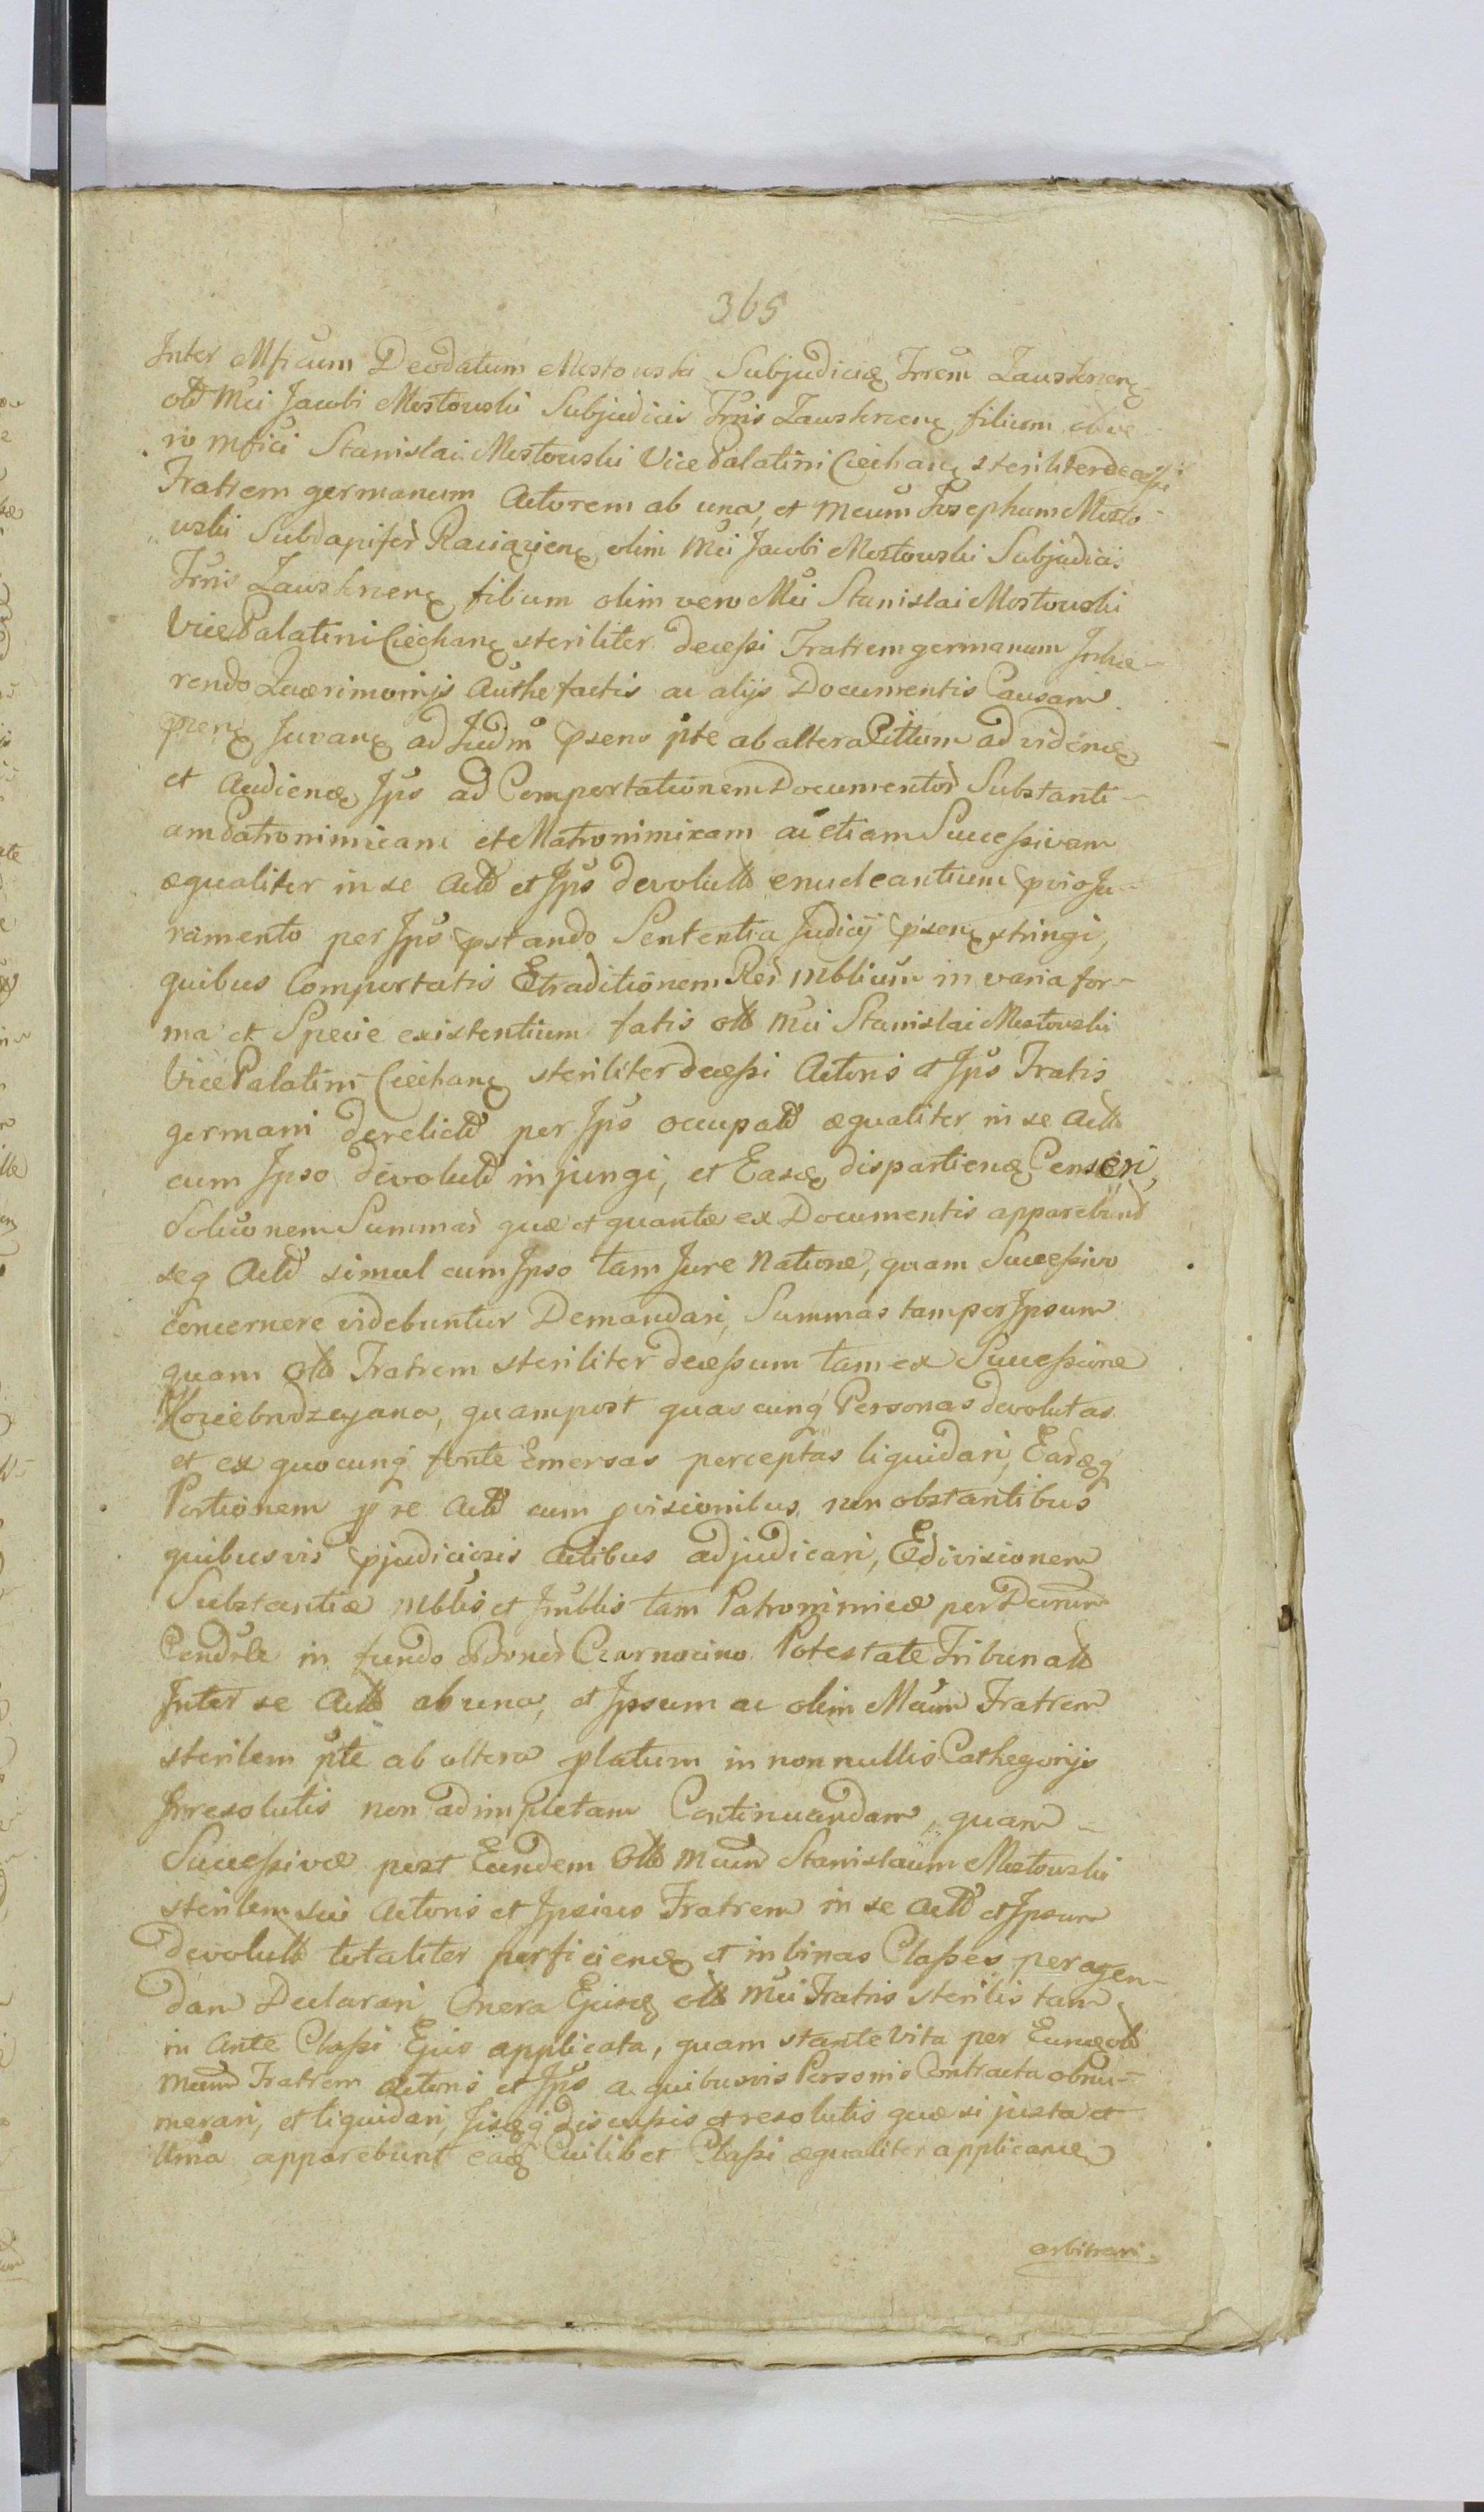 365
Inter Mficum Deodatum Mostowski Subjudicē Trrem Zauskrzenē
olī Mci Jacobi Mostowski Subjudicis Trris Zauskrzenē filium ol ve-
ro Mfici Stanislai Mostowski Vice Palatini Ciechanē steriliter decessi
Fratrem germanum Actorem ab una, et Mcum Josephum Mosto-
wski Subdapifer Raciązienē olim Mci Jacobi Mostowski Subjudicis
Trris Zauskrzenē filium olim vero Mci Stanislai Mostowski
Vice Palatini Ciechanē steriliter decessi Fratrem germanum Inhæ-
rendo Quærimonijs Authe factis ac alijs Documentis Causam
pſenē Juvanē ad Judm pſens pte ab altera Cittum ad videnē
et Audienē Ips ad Comportationem Documentor Substanti-
am Patronimicam et Matronimicam ac etiam Successivam
æqualiter in se Actō et Ips devolutō enucleantium pvio Ju-
ramento per Ips pstando Sententia Judicij pſenē stringi,
quibus Comportatis Etraditionem Rer Mblium in varia for-
ma et Specie existentium fatis olō Mci Stanislai Mostowski
Vice Palatini Ciechanē steriliter decessi Actoris et Ips Fratis
germani derelictō per Ips occupatō æqualiter in se Actō
cum Ipso devolutō injungi, et Easē dispartienē Censeri,
Solūonem Summar quæ et quantæ ex Documentis apparebunt
seq Actō simul cum Ipso tam Jure Naturæ, quam Successivo
Concernere videbuntur Demandari, Summas tam per Ipsum
quam olō Fratrem steriliter decessum tam ex Successione
Kociebrodzeyana, quam post quascunq Personas devolutas
et ex quocunq fonte Emersas perceptas liquidari, Earq
Portionem p re Actō cum pvisionibus, non obstantibus
quibusvis pjudiciosis Actibus adjudicari, Edivisionem
Substantiæ Mblis et Imblis tam Patronimicæ per Decrum
Condrle in fundo Bonor Czarnocino Potestate Tribunalō
Inter se Actō ab una, et Ipsum ac olim Mcum Fratrem
sterilem pte ab altera platum in nonnullis Cathegorijs
Irresolutis non adimpletam Continuandam, quam-
Successivæ post Eundem Olō Mcum Stanislaum Mostowski
sterilem sui Actoris et Ipsius Fratrem in se Actō et Ipsum
devolutō totaliter perficienē et in binas Classes peragen-
dam Declarari, Onera Ejusdē olō Mci Fratris sterilis tam
in Ante Classi Ejus applicata, quam stante Vita per Eunē olō
Mcum Fratrem Actoris et Ips a quibusvis Personis Contracta obnu-
merari, et liquidari, Jisq discussis et resolutis quæ si justa et
lttma apparebunt eadē Cuilibet Classi æqualiter applicanē
arbitrari